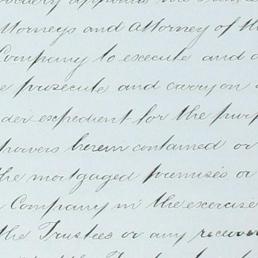 Attorneys and Attorney of the
Company to execute and d
e prosecute and carry on
der expedient for the purp
powers herein contained or
the mortgaged premises or
Company in the exercise
the Trustees or any receiver